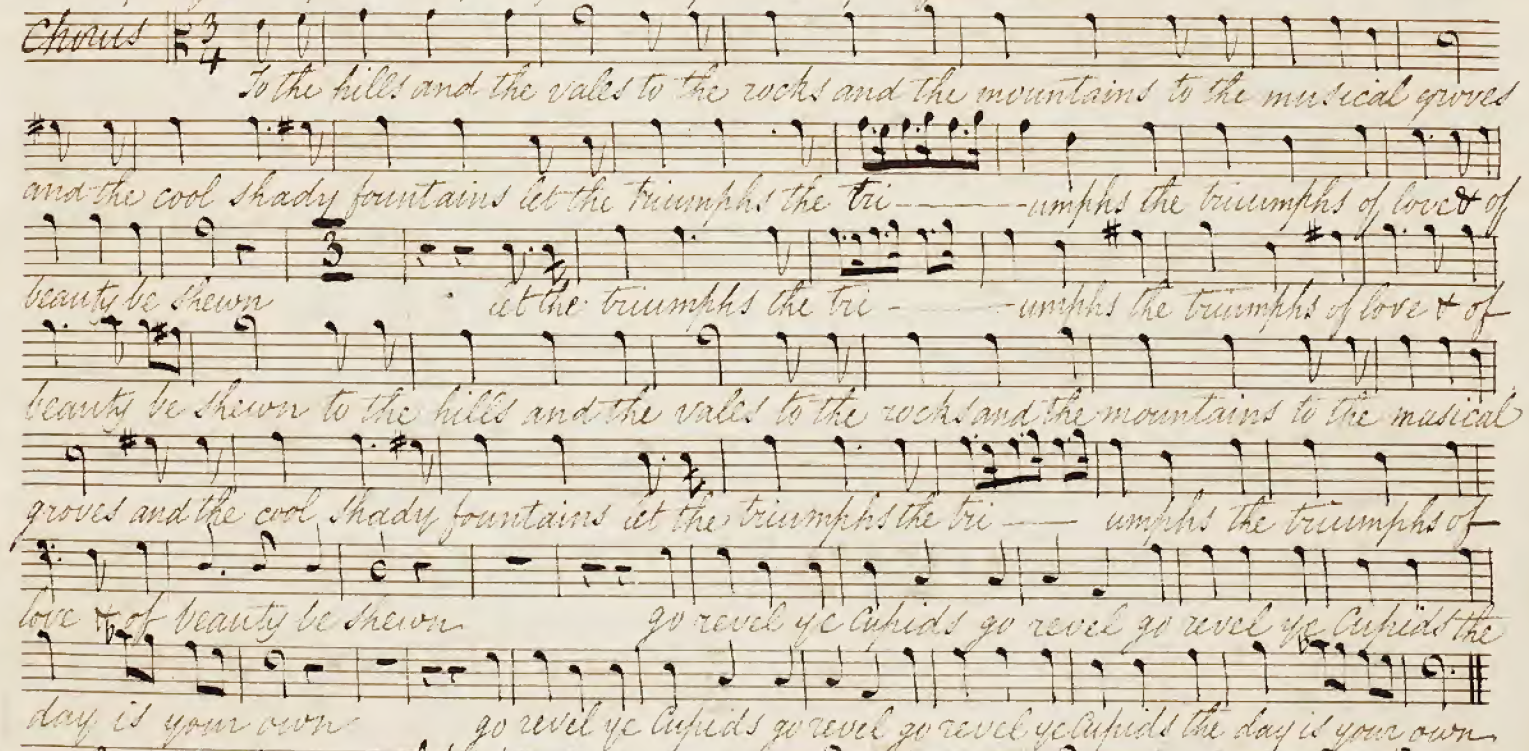 Chorus 3 4
To the hills and the vales to the rocks and the mountains to the musical groves
and the cool shady fountains let the triumphs the tri - umphs the triumphs of love & of
3
beauty be shewn let the triumphs the tri - umphs the triumphs of love & of
beauty be shewn to the hills and the vales to the rocks and the mountains to the musical
groves and the cool shady fountains let the triumphs the tri - umphs the triumphs of
love & of beauty be shewn go revel ye Cupids go revel go revel ye Cupids the
day is your own go revel ye Cupids go revel go revel ye Cupids the day is your own